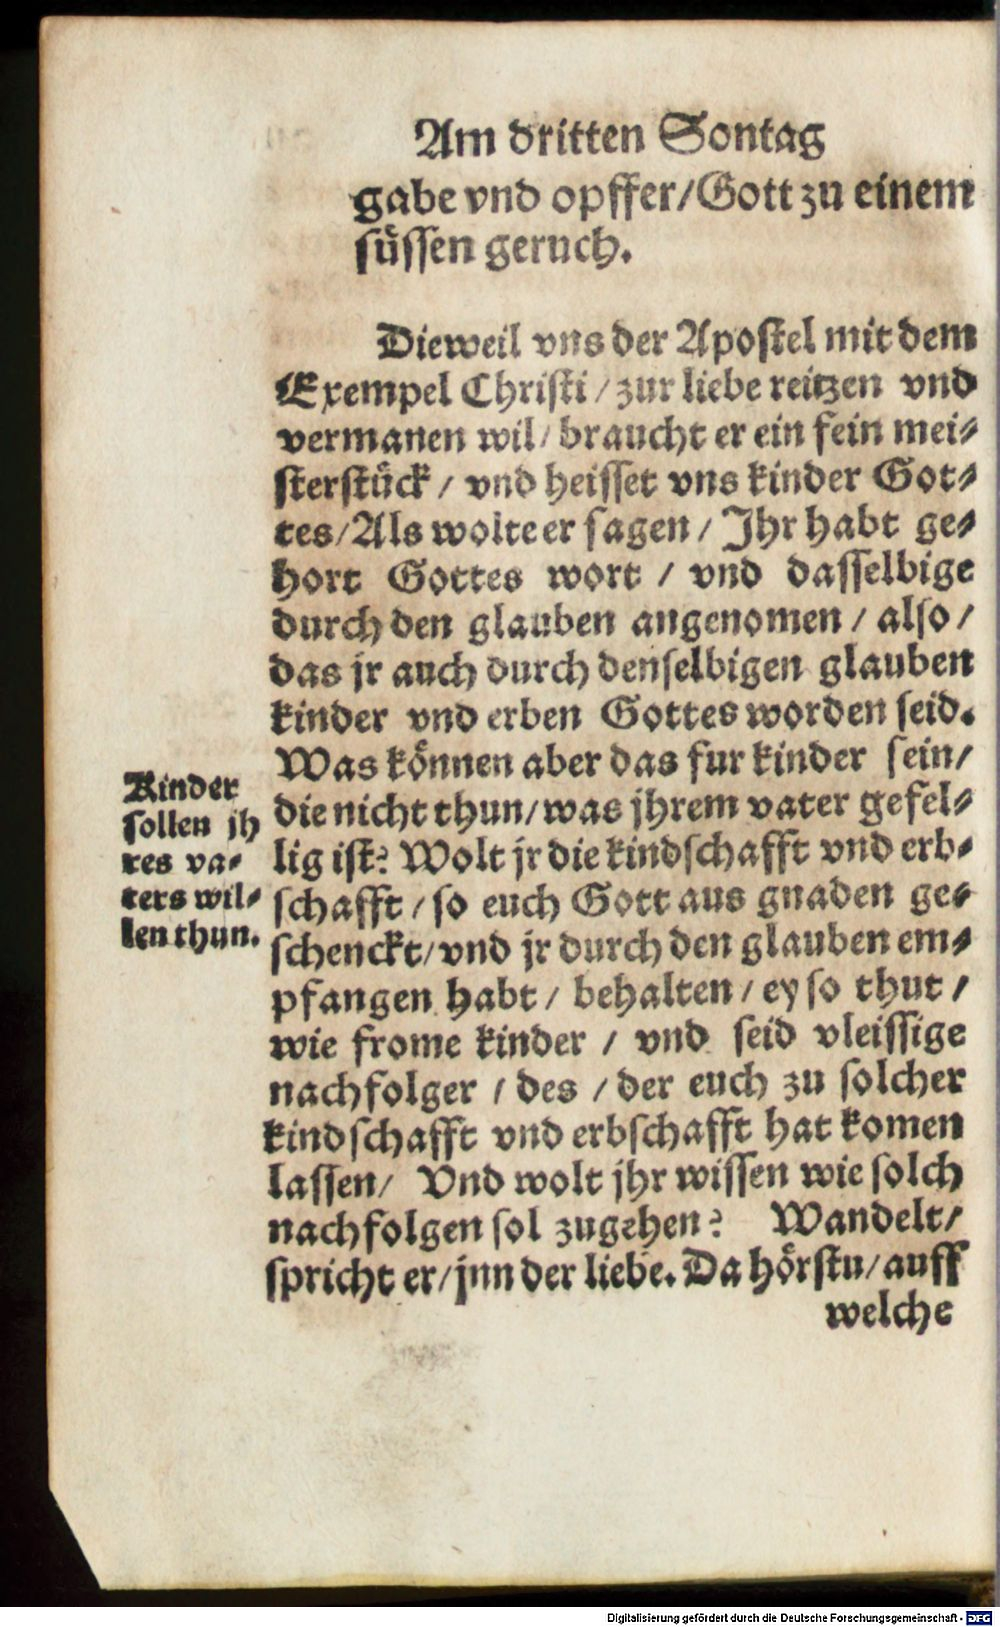 Am dritten Sontag
gabe vnd opffer/Gott zu einem
süssen geruch.
Dieweil vns der Apostel mit dem
Exempel Christi / zur liebe reitzen vnd
vermanen wil/ braucht er ein fein mei-
sterstück / vnd heisset vns kinder Got-
tes/Als wolte er sagen / Jhr habt ge-
hort Gottes wort / vnd dasselbige
durch den glauben angenomen / also /
das jr auch durch denselbigen glauben
kinder vnd erben Gottes worden seid.
Was können aber das fur kinder sein/
die nicht thun/was jhrem vater gefel-
lig ist? Wolt jr die kindschafft vnd erb-
schafft / so euch Gott aus gnaden ge-
schenckt/vnd jr durch den glauben em-
pfangen habt / behalten / ey so thut /
wie frome kinder / vnd seid vleissige
nachfolger / des / der euch zu solcher
kindschafft vnd erbschafft hat komen
lassen/ Vnd wolt jhr wissen wie solch
nachfolgen sol zugehen? Wandelt/
spricht er/jnn der liebe. Da hörstu/auff
welche
Kinder
sollen jh
res va-
ters wil-
len thun.
Digitalisierung gefördert durch die Deutsche Forschungsgemeinschaft - DFG